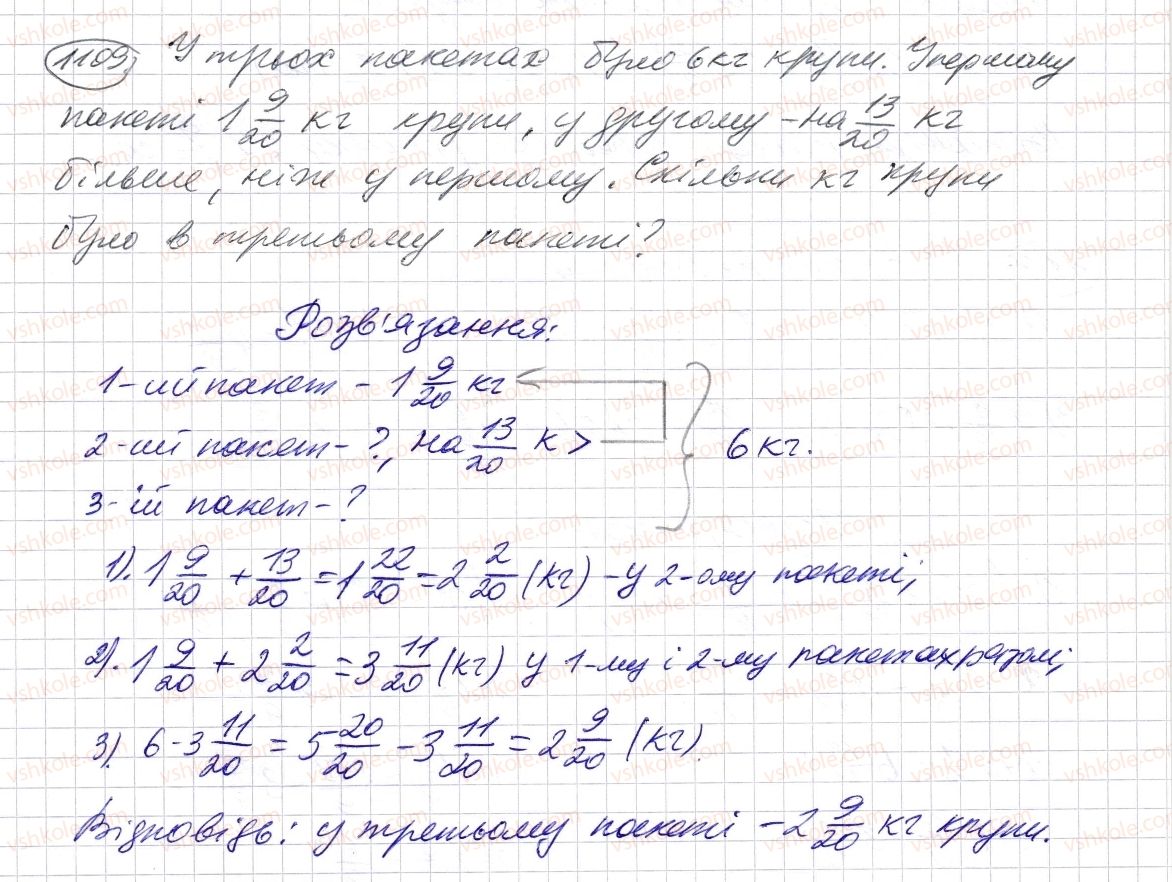 1109) У трьох пакетах було 6 кг крупи. У першому
пакеті 1 9/20 кг крупи, у другому – на 13/20 кг
більше, ніж у першому. Скільки кг крупи
було в третьому пакеті?
Розв'язання:
1-ий пакет – 1 9/20 кг
2-ий пакет – ?, на 13/20 к >
6 кг.
3-ій пакет – ?
1). 1 9/20 + 13/20 = 1 22/20 = 2 2/20 (кг) – у 2-ому пакеті;
2). 1 9/20 + 2 2/20 = 3 11/20 (кг) у 1-му і 2-му пакетах разом;
3) 6 - 3 11/20 = 5 20/20 - 3 11/20 = 2 9/20 (кг).
Відповідь: у третьому пакеті – 2 9/20 кг крупи.